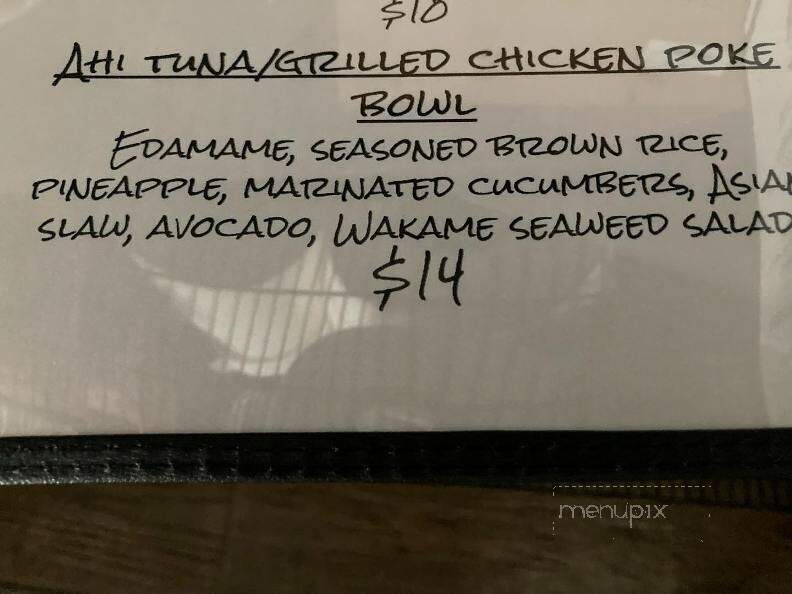 $10
AHI TUNA/GRILLED CHICKEN POKE
BOWL
EDAMAME, SEASONED BROWN RICE,
PINEAPPLE, MARINATED CUCUMBERS, ASIAN
SLAW, AVOCADO, WAKAME SEAWEED SALAD
$14
menupix